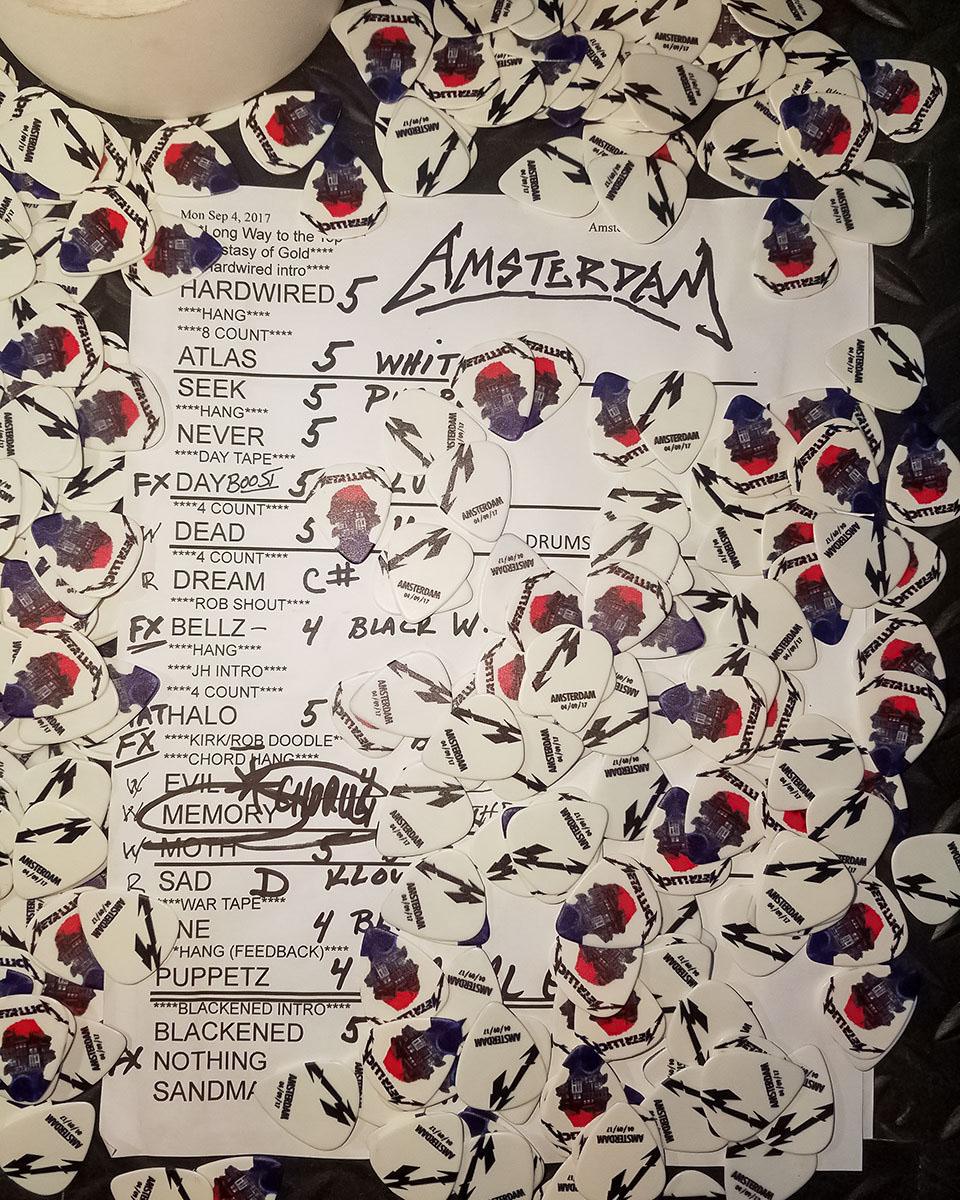 Mon Sep 4, 2017
Long Way to the Top
stasy of Gold****
Hardwired intro****
HARDWIRED 5 AMSTERDAM
****HANG****
****8 COUNT****
ATLAS 5 WHIT
SEEK 5
****HANG****
NEVER 5
****DAY TAPE****
FX DAY BOOST 5
****4 COUNT****
W DEAD 5 DRUMS
****4 COUNT****
R DREAM C#
****ROB SHOUT****
FX BELLZ – 4 BLACK W.
****HANG****
****JH INTRO****
****4 COUNT****
HALO 5
FX ****KIRK/ROB DOODLE*
****CHORD HANG****
W EVIL
W MEMORY CHORUS
W MOTH 5
R SAD D
****WAR TAPE****
NE 4 B
*HANG (FEEDBACK)****
PUPPETZ 4
****BLACKENED INTRO****
BLACKENED 5
NOTHING
SANDMA
METALLICA
AMSTERDAM
04/09/17